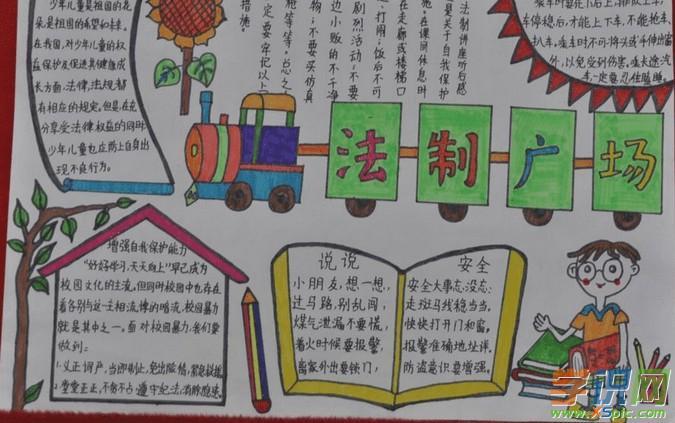 少年儿童是祖国的花
朵是祖国的希望和未来。
在我国,对少年儿童的权
益保护及促进其健康成
长方面,法律,法规都
有相应的规定。但是,在充
分享受法律权益的同时,
少年儿童也应防止自身出
现不良行为。
措施。
定要牢记以上
枪等等。总之,
物;不要买仿真
边小贩的不干净
剧烈活动;不要
打闹;饭后不可
在走廊或楼梯口
施:在课间休息时
是关于自我保护
法制讲座听后感
车停稳后,才能上下车,不能抢车、
扒车。乘车时不可将头或手伸出窗
外,以免受到伤害。乘长途汽
车,一定要忍住瞌睡。
法制广场
增强自我保护能力
"好好学习,天天向上"早已成为
校园文化的主流。但同时校园中也存在
着各别与这一主相流悖的暗流,校园暴力
就是其中之一。面对校园暴力,我们要
做到:
1.义正词严,当即制止,免出险情,紧急救援
2.堂堂正正,不贪不占,遵守纪法,消除隐患。
说说
小朋友,想一想,
过马路,别乱闯,
煤气泄漏不要慌,
着火时候要报警,
离家外出要锁门,
安全
安全大事忘:没忘:
走斑马线稳当当,
快快打开门和窗,
报警准确地址详,
防盗意识要增强。
学识网
www.xSpic.com